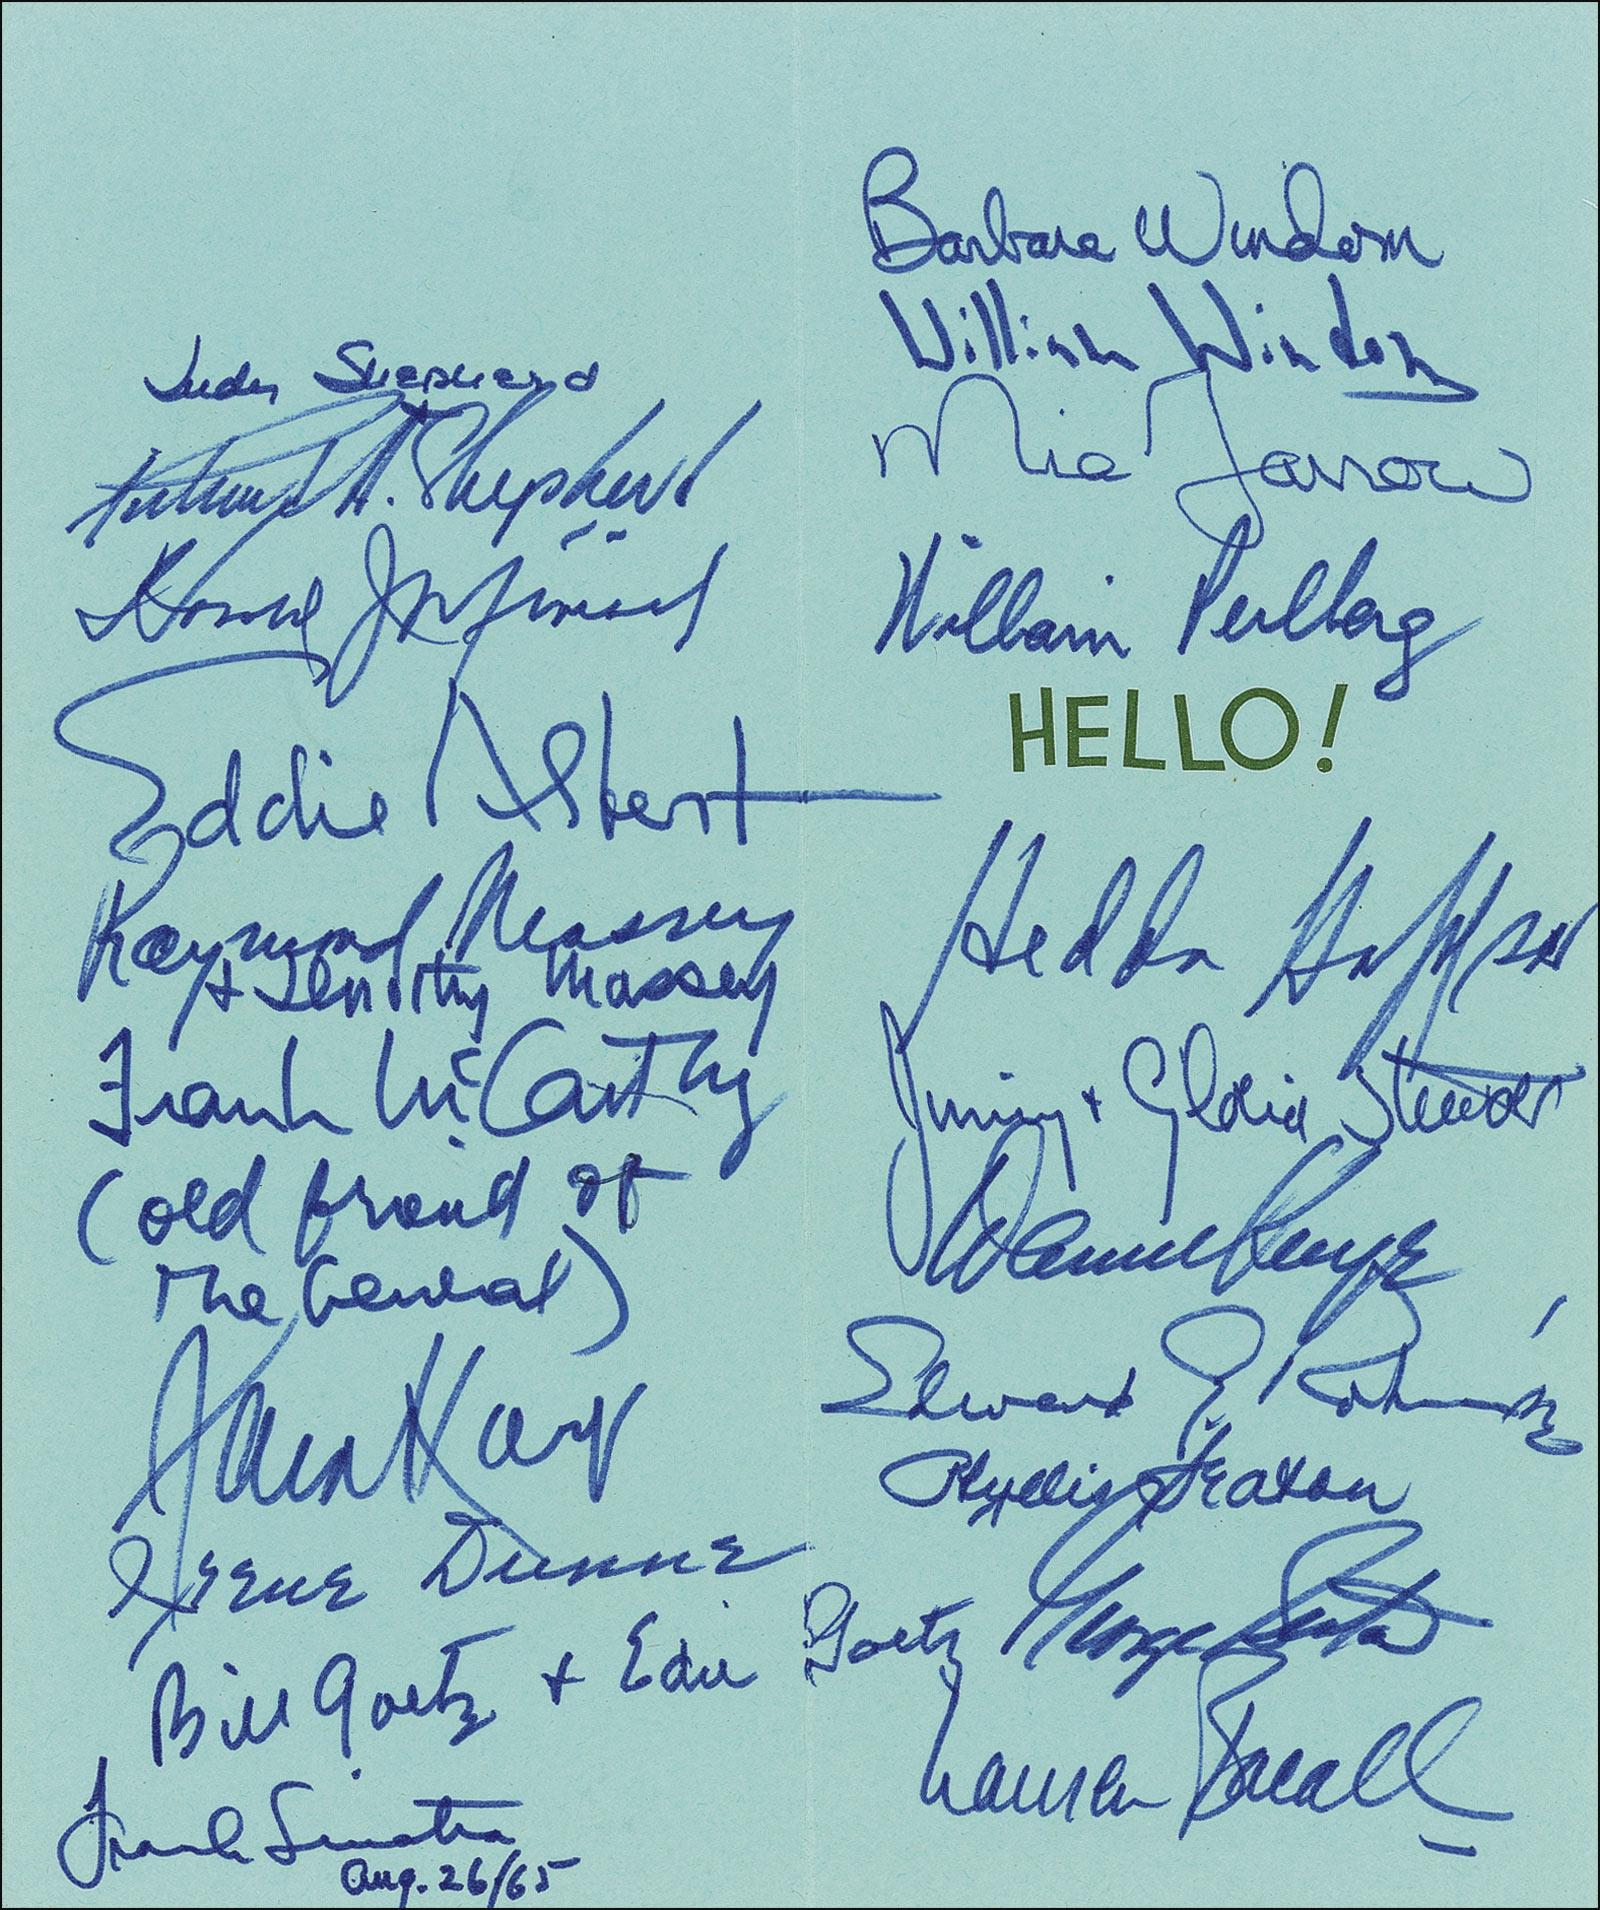 Judy Shepherd
Arthur H. Shepherd
Eddie Albert
Raymond Massey
+ Dorothy Massey
Frank McCarthy
(old friend of
the General)
Irene Dunne
Bill Goetz + Edie Goetz
Frank Sinatra
Aug. 26/65
Barbara Windom
William Windom
Mia Farrow
William Perlberg
HELLO!
Hedda Hopper
Jimmy + Gloria Stewart
Danny Kaye
Edward G. Robinson
Phyllis Seaton
George Seaton
Lauren Bacall